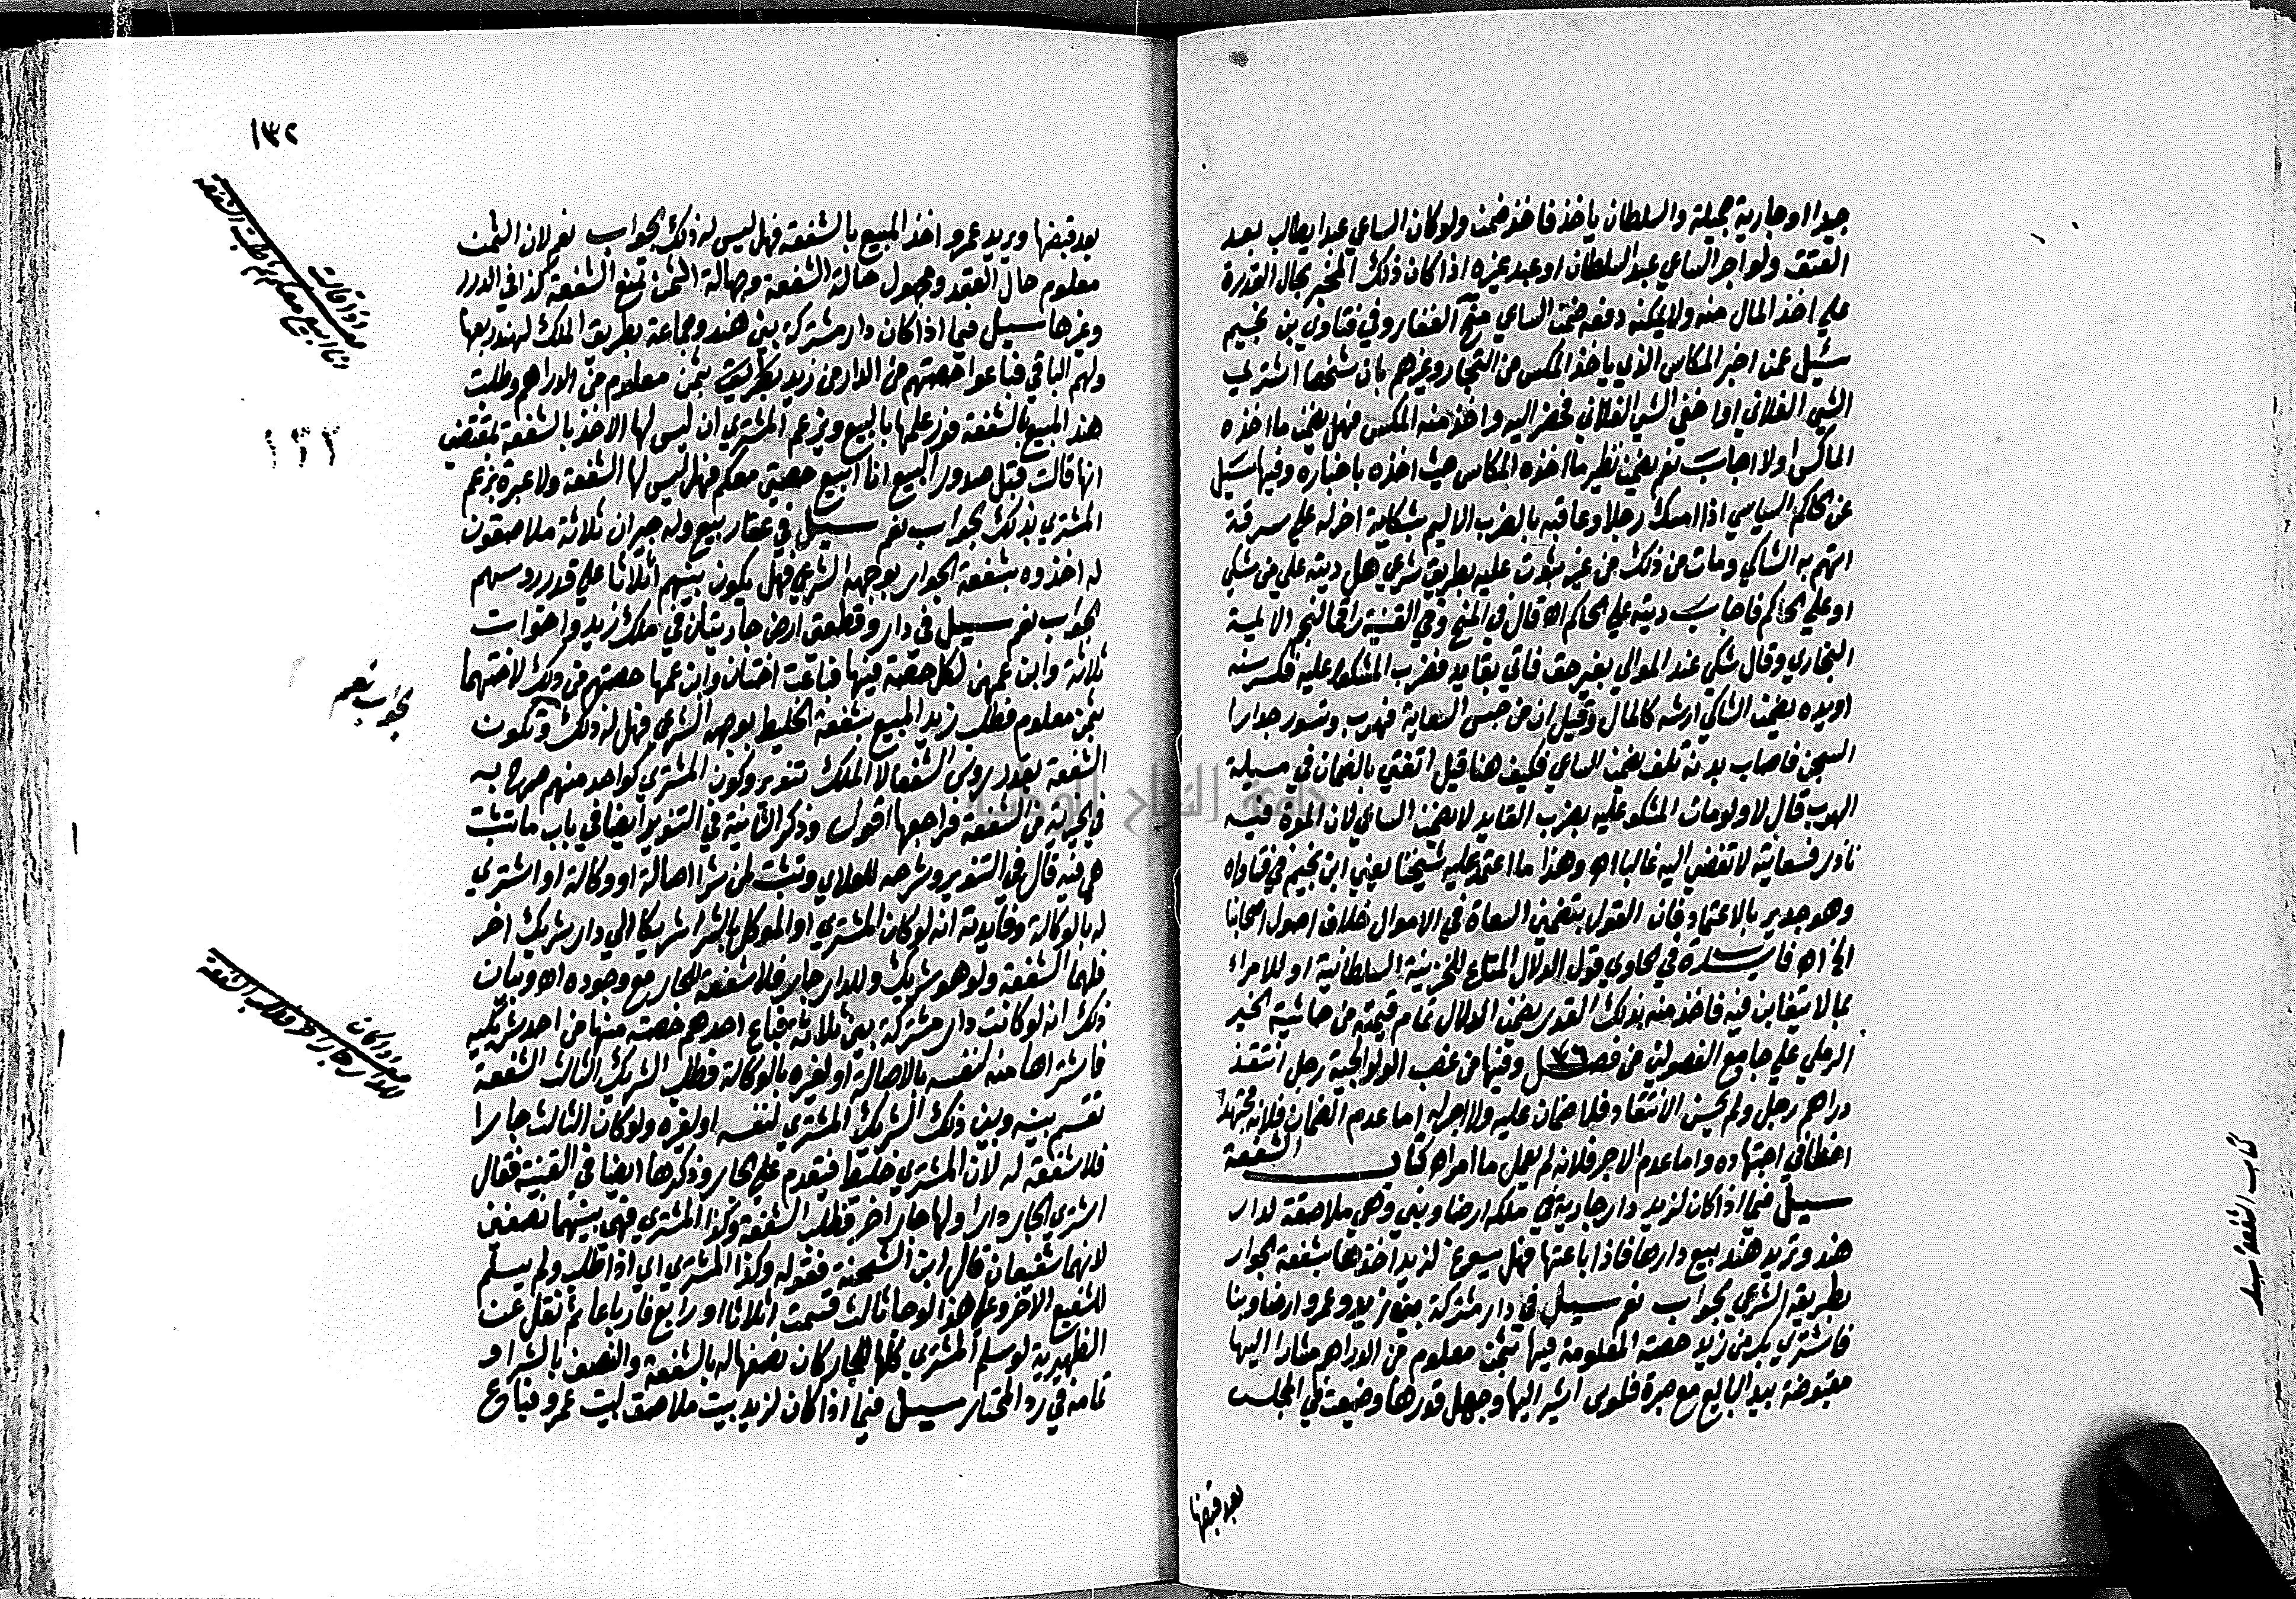 جيدا او جارية جميلة والسلطان ياخذ فاخذ ضمن ولو كان الساعي عبدا يطالب بعد
العتق ولو اخبر الساعي عبد السلطان او عبد غيره اذا كان ذلك المخبر بحال القدرة
علي اخذ المال منه ولا يمكنه دفعه ضمن الساعي منح الغفار وفي فتاوي بن نجيم
سئيل عمن اخبر المكاس الذي ياخذ المكس من التجار وغيرهم بان شخصا اشتري
الشي الفلاني او اخفي الشي الفلاني فحضر اليه واخذ منه المكس فهل يضمن ما اخذه
الماكس او لا اجاب نعم يضمن نظير ما اخذه المكاس حيث اخذه باخباره وفيها سئيل
عن الحاكم السياسي اذا امسك رجلا وعاقبه بالضرب الاليم بشكاية اخر له علي سرقة
اتهم به الشاكي ومات من ذلك من غير ثبوت عليه بطريق شرعي هل ديته علي من شكي
او علي الحاكم فاجاب ديته علي الحاكم اه قال في المنح وفي القنية راقما لنجم الايمة
البخاري وقال شكي عند الوالي بغير حق فاتي بقايد فضرب المشكو عليه فكسر سنه
او يده يضمن الشاكي ارشه كالمال وقيل ان من حبس السعاية فهرب وتسور جدار
السجن فاصاب بدنه تلف يضمن الساعي فكيف هنا قيل اتفتي بالضمان في مسيلة
الهرب قال لا ولو مات المشكو عليه بضرب القايد لا يضمن الساعي لان الموت فيه
نادر فسعايته لا تفضي اليه غالبا اه وهذا ما اعتمد عليه شيخنا يعني ابن نجيم في فتاواه
وهو جدير بالاعتماد فان القول بتضمين السعاة في الاموال خلاف اصول اصحابنا
الخ اه فايدة في الحاوي قول الدلال المتاع للخزينة السلطانية او للامراء
بما لا يتغابن فيه فاخذ منه بذلك القدر يضمن الدلال تمام قيمته من حاشية الخير
الرملي علي جامع الفصولين من فصل وفيها من غصب الولوالجية رجل انتقد
دراهم رجل ولم يحسن الانتقاد فلا ضمان عليه ولا اجر له اما عدم الضمان فلانه مجتهد
اخطا في اجتهاده واما عدم الاجر فلانه لم يعمل ما امر اه كتاب الشفعة
سيل فيما اذا كان لزيد دار جارية في ملكه ارضا وبني وهي ملاصقة لدار
هند وتريد هند بيع دارها فاذا باعتها فهل يسوغ لزيد اخذها بشفعة الجوار
بطريقه الشرعي الجواب نعم سيل في دار مشتركة بين زيد وعمرو ارضا وبنا
فاشتري بكر من زيد حصته المعلومة فيها بثمن معلوم من الدراهم مشارا اليها
مقبوضة بيد البايع مع صرة فلوس اشير اليها وجهل قدرها وضيعت في المجلس
بعد قبضها
كتاب الشفعة
بعد قبضها ويريد عمرو اخذ المبيع بالشفعة فهل ليس له ذلك الجواب نعم لان الثمن
معلوم حال العقد ومجهول حالة الشفعة وجهالة الثمن تمنع الشفعة كذا في الدرر
وغيرها سيل فيما اذا كان دار مشتركة بين هند وجماعة بطريق الملك لهند ربعها
ولهم الباقي فباعوا حصتهم من الدار من زيد بثمن معلوم من الدراهم وطلبت
هند المبيع بالشفعة فور علمها بالبيع ويزعم المشتري ان ليس لها الاخذ بالشفعة بمقتضي
انها قالت قبل صدور البيع انا ابيع حصتي معكم فهل ليس لها الشفعة ولا عبرة بزعم
المشتري بذلك الجواب نعم سيل في عقار بيع وله جيران ثلاثة ملاصقون
له اخذوه بشفعة الجوار بوجهه الشرعي فهل يكون بينهم اثلاثا علي قدر روسهم
الجواب نعم سيل في دار وقطعتي ارض جاريتان في ملك زيد واخوات
ثلاثة وابن عمهن لكل حصة فيها فباعت اختان وابن عمها حصتهم من ذلك لاختهما
بثمن معلوم فطلب زيد المبيع بشفعة الخليط بوجهه الشرعي فهل له ذلك وتكون
الجواب نعم
الشفعة بعدد روس الشفعا لا الملك تنوير وكون المشتري كواحد منهم صرح به
في الخيرية من الشفعة فراجعها اقول وذكر الثانية في التنوير ايضا في باب ما تثبت
هي فيه قال في التنوير وشرحه للعلاي وتثبت لمن شرا اصالة او وكالة او اشتري
له بالوكالة وفايدته انه لو كان المشتري او الموكل بالشرا شريكا الي دار شريك اخر
فلهما الشفعة ولو هو شريك وللدار جار فلا شفعة للجار مع وجوده اه وبيان
ذلك انه لو كانت دار مشتركة بين ثلاثة فباع احدهم حصته منها من احد شريكيه
فاشتراها منه لنفسه بالاصالة او لغيره بالوكالة فطلب الشريك الثالث الشفعة
تقسم بينه وبين ذلك الشريك المشتري لنفسه او لغيره ولو كان الثالث جارا
فلا شفعة له لان المشتري خليط فيقدم علي الجار وذكرها ايضا في القنية فقال
اشتري الجار دارا ولها جار اخر فطلب الشفعة وكذا المشتري فهي بينهما نصفين
لانهما شفيعان قال ابن الشحنة فقوله وكذا المشتري اي اذا طلب ولم يسلم
للشفيع الاخر وعلي هذا لو جا ثالث قسمت اثلاثا او رابع فارباعا ثم نقل عن
الظهيرية لو سلم المشتري كلها للجار كان نصفها له بالشفعة والنصف بالشرا و
تمامه في رد المحتار سيل فيما اذا كان لزيد بيت ملاصق لبيت عمرو فباع
١٣٢